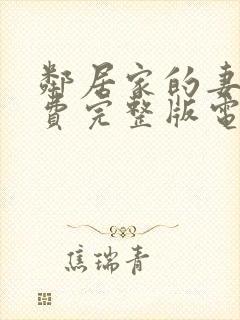 鄰居家的妻
費完整版電
焦瑞青